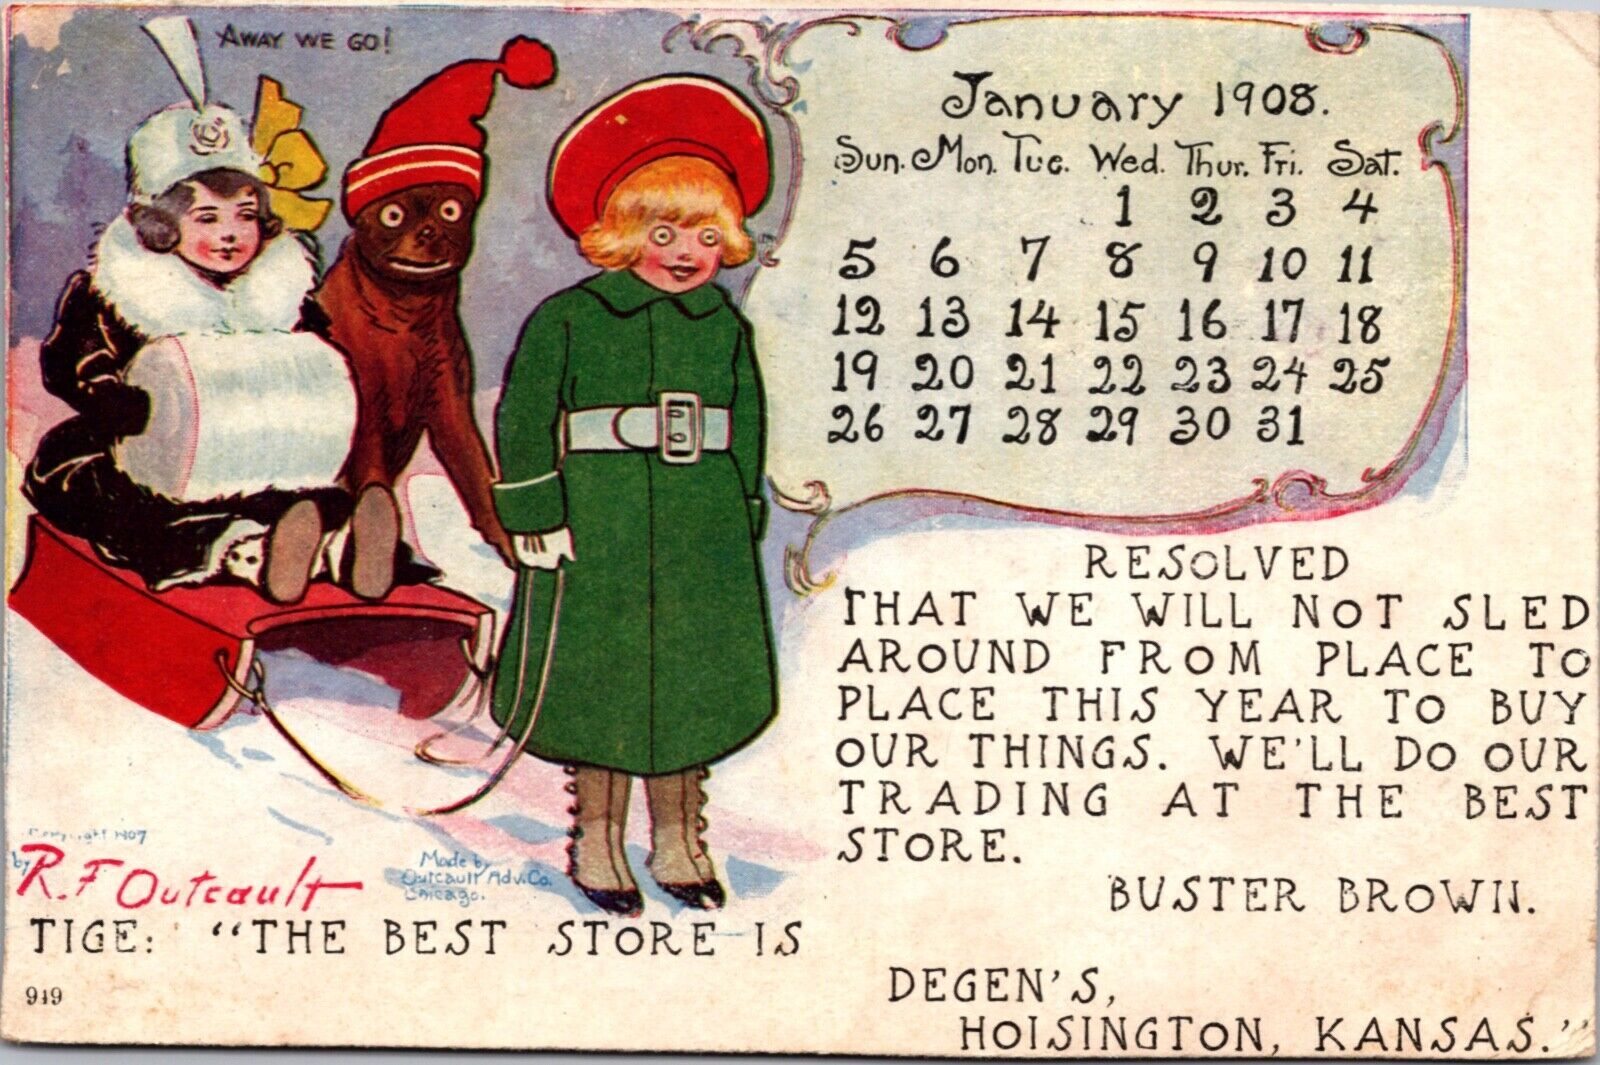 AWAY WE GO!
January 1908.
Sun. Mon. Tue. Wed. Thur. Fri. Sat.
1 2 3 4
5 6 7 8 9 10 11
12 13 14 15 16 17 18
19 20 21 22 23 24 25
26 27 28 29 30 31
RESOLVED
THAT WE WILL NOT SLED
AROUND FROM PLACE TO
PLACE THIS YEAR TO BUY
OUR THINGS. WE'LL DO OUR
TRADING AT THE BEST
STORE.
BUSTER BROWN.
Copyright 1907
by R.F Outcault
Made by
Outcault Adv. Co.
Chicago.
TIGE: "THE BEST STORE IS
DEGEN'S,
HOISINGTON, KANSAS."
949